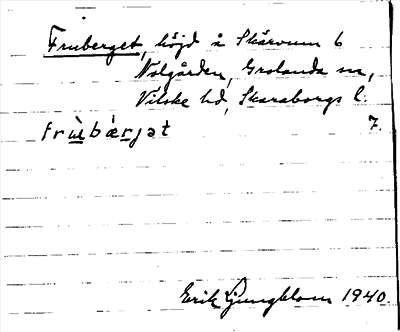 Fruberget, höjd å Skärvum 6
Nolgården, Grolanda sn,
Vilske hd, Skaraborgs l.
frùbæ̀rjət 7.
Erik Ljungblom 1940.